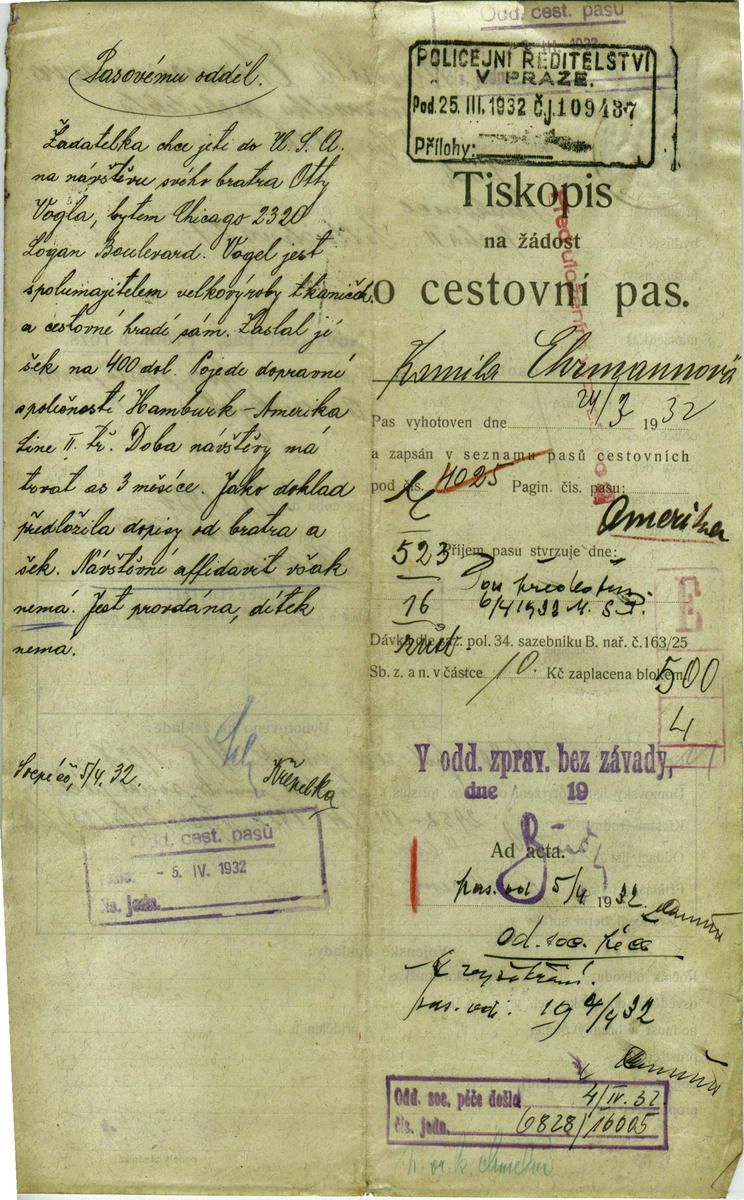 Pasovému odděl.
Žadatelka chce jeti do U. S. A.
na návštěvu svého bratra Otty
Vogla, bytem Chicago 2320
Logan Boulevard. Vogel jest
spolumajitelem velkovýroby tkaniček
a cestovné hradí sám. Zaslal jí
šek na 400 dol. Pojede dopravní
společností Hamburk-Amerika
Line II. tř. Doba návštěvy má
trvat as 3 měsíce. Jako doklad
předložila dopisy od bratra a
šek. Návštěvní affidavit však
nemá. Jest provdána, dítek
nema.
5/4. 32.
Křepelka
Odd. cest. pasů
- 5. IV. 1932
čís. jedn.
Odd. cest. pasů
1932
POLICEJNÍ ŘEDITELSTVÍ
V PRAZE.
Pod. 25. III. 1932 Č.j. 109437
Přílohy:
Tiskopis
na žádost
o cestovní pas.
Kamila Ehrmannová
Pas vyhotoven dne 24/3 1932
a zapsán v seznamu pasů cestovních
pod čís. 4025 Pagin. čís. pasu:
Amerika
523 Příjem pasu stvrzuje dne:
16
6/4 1933
E
Dávka dle saz. pol. 34. sazebníku B. nař. č. 163/25
Sb. z. a n. v částce 10. Kč zaplacena blokem
500
4
V odd. zprav. bez závady,
dne 19
Ad acta.
5/4 1932
Od. soc. péče
k vyšetření.
19 4/4 32
Odd. soc. péče došlo 4/IV. 32
čís. jedn. 6828/16005